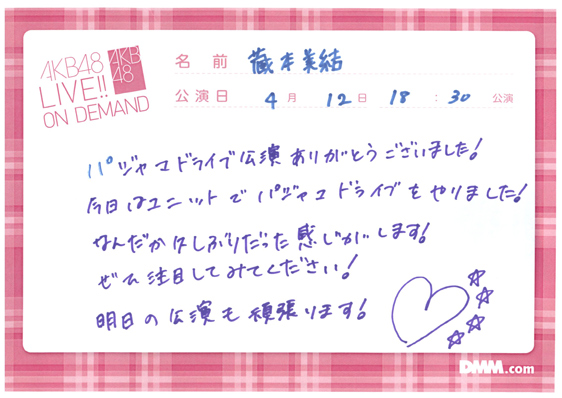 AKB48
LIVE!!
ON DEMAND
AKB
48
名前 蔵本美結
公演日 4月 12日 18:30 公演
パジャマドライブ公演ありがとうございました!
今日はユニットでパジャマドライブをやりました!
なんだか久しぶりだった感じがします!
ぜひ注目してみてください!
明日の公演も頑張ります!
DMM.com